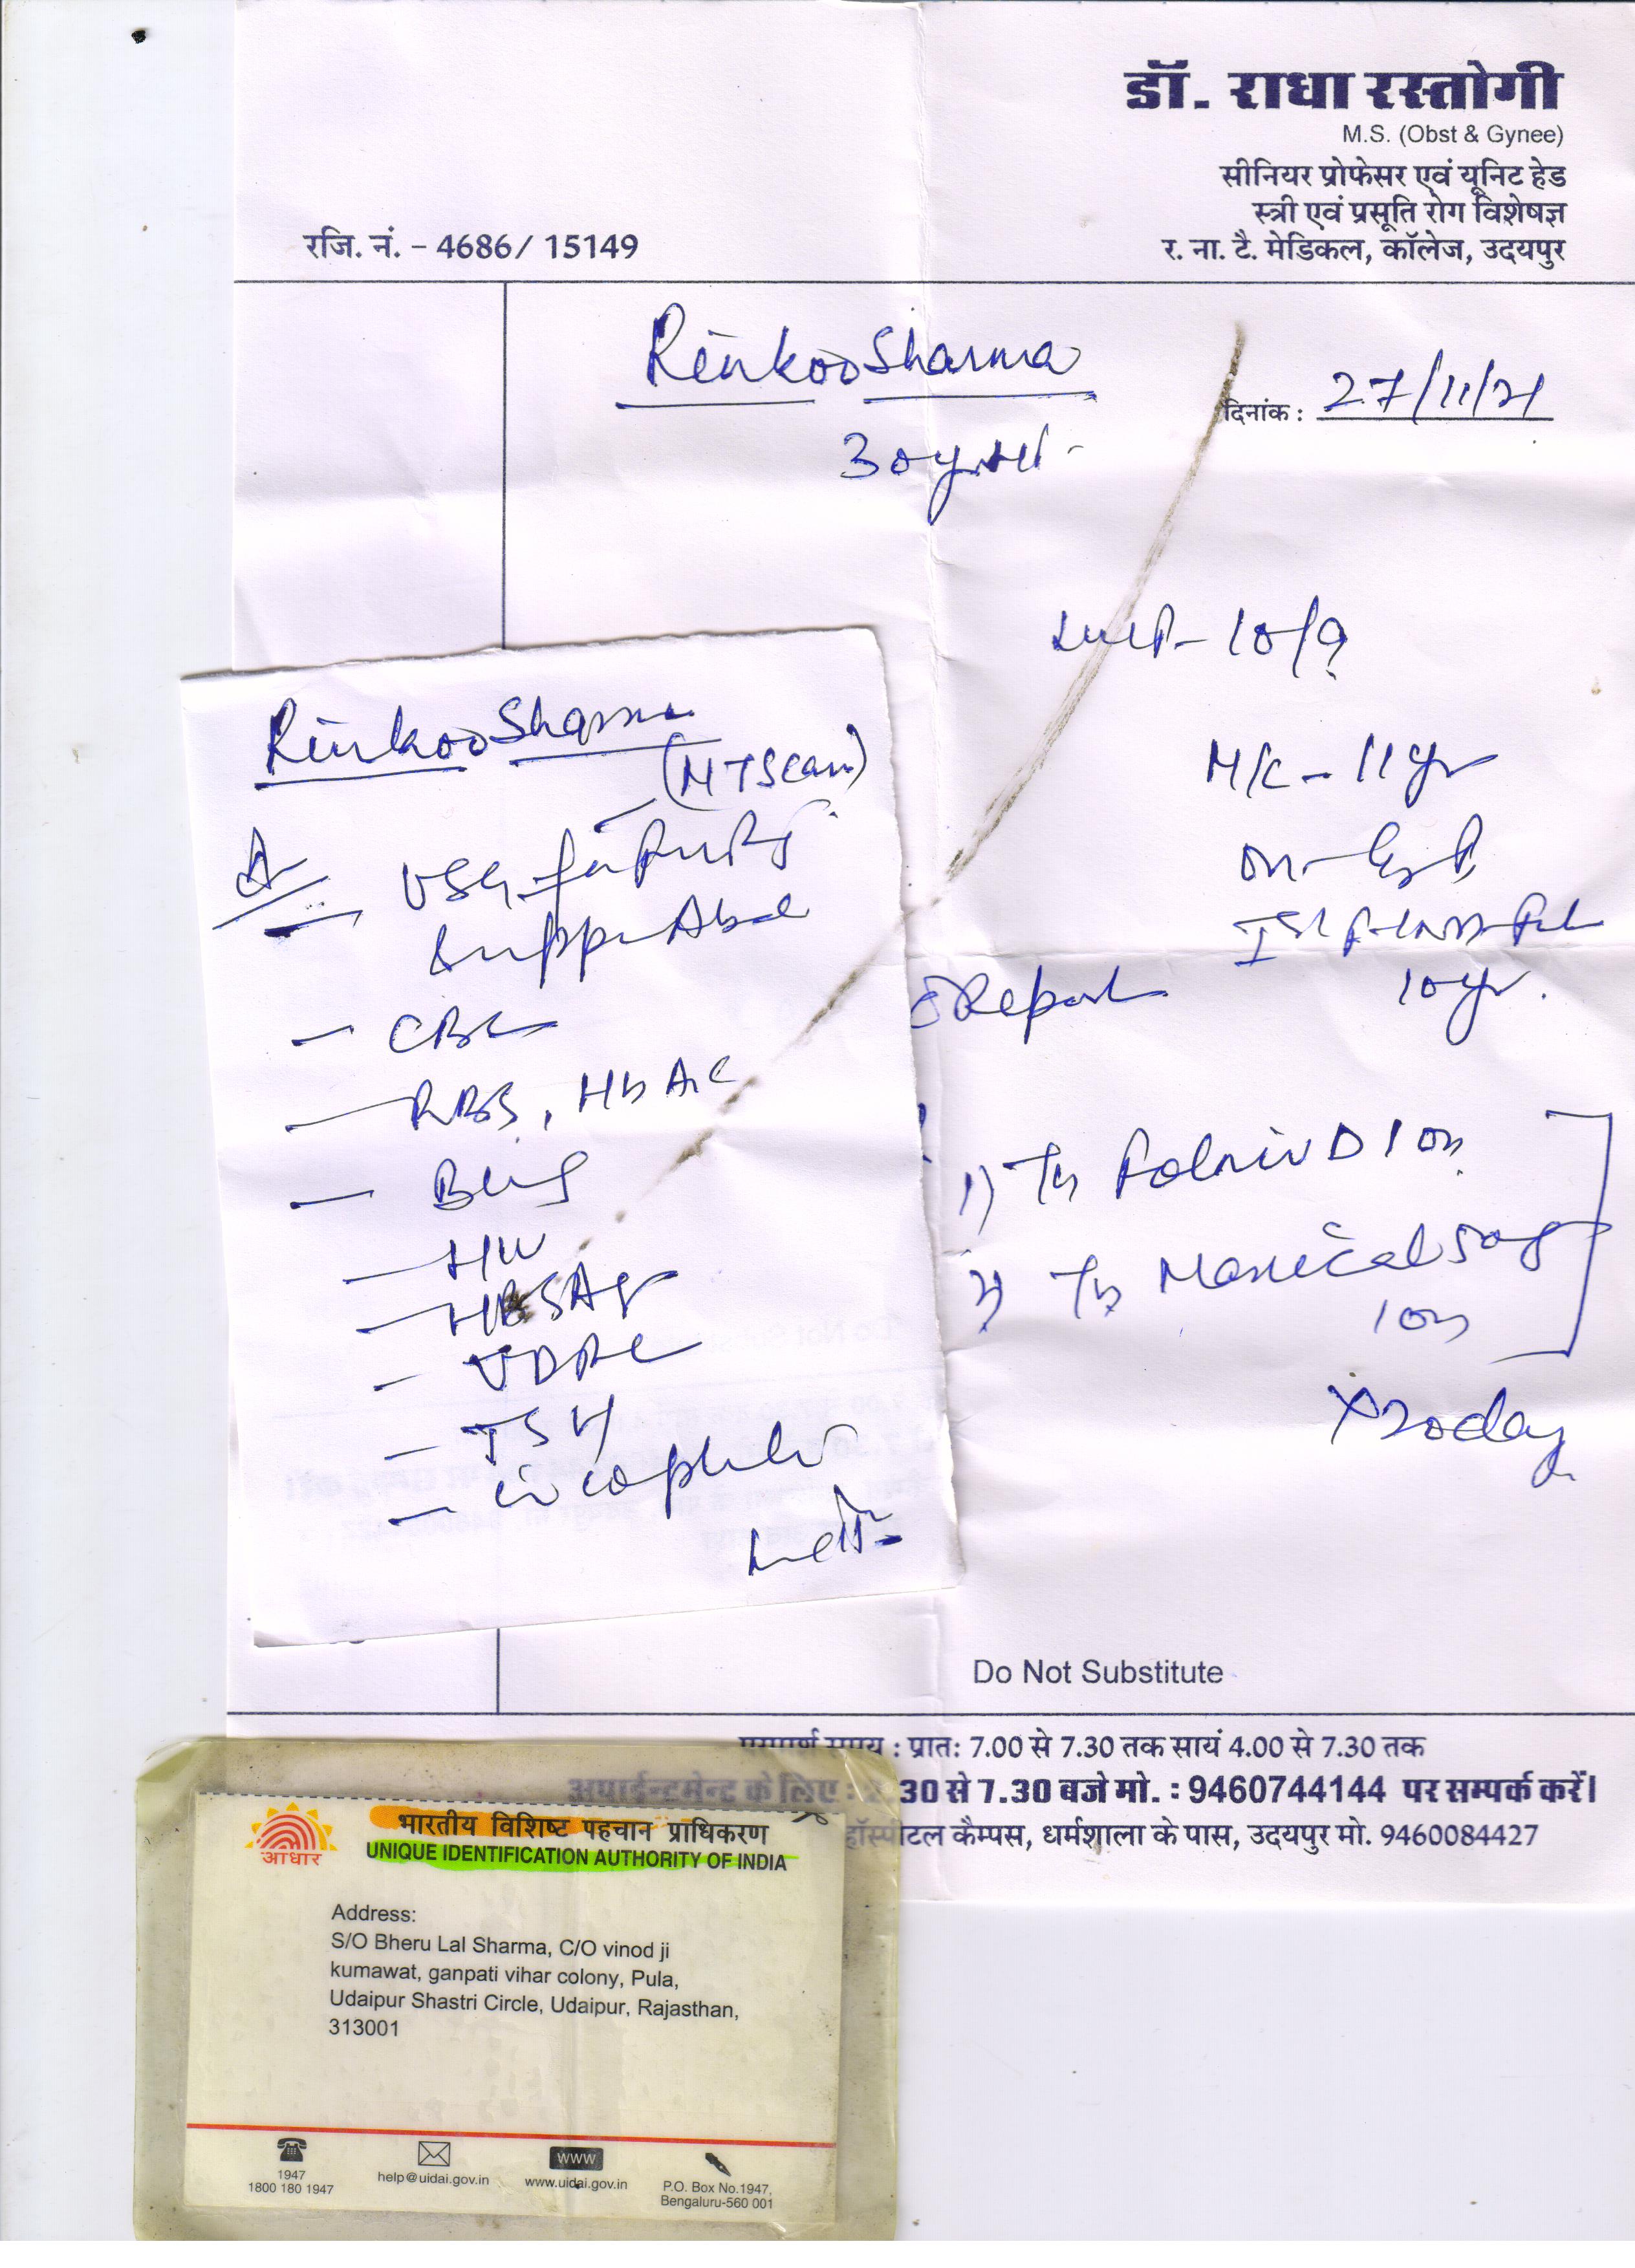 डॉ. राधा रस्तोगी
M.S. (Obst & Gynee)
सीनियर प्रोफेसर एवं यूनिट हेड
स्त्री एवं प्रसूति रोग विशेषज्ञ
र. ना. टै. मेडिकल, कॉलेज, उदयपुर
रजि. नं. - 4686/ 15149
Rinkoo Sharma
दिनांक : 27/11/21
30yr
LMP - 10/9
M/C - 11yr
10yr.
Report
1) Tb D 1 OD
2) Tb 50mg
1 OD
x 20 day
Rinkoo Sharma
(NT Scan)
USG
Upper Abd
- CBC
- RBS, HbA1C
- Bldg
- HIV
- HBSAg
- VDRL
- TSH
Do Not Substitute
समय : प्रातः 7.00 से 7.30 तक सायं 4.00 से 7.30 तक
अपाईन्टमेन्ट के लिए : 30 से 7.30 बजे मो. : 9460744144 पर सम्पर्क करें।
हॉस्पीटल कैम्पस, धर्मशाला के पास, उदयपुर मो. 9460084427
भारतीय विशिष्ट पहचान प्राधिकरण
आधार
UNIQUE IDENTIFICATION AUTHORITY OF INDIA
Address:
S/O Bheru Lal Sharma, C/O vinod ji
kumawat, ganpati vihar colony, Pula,
Udaipur Shastri Circle, Udaipur, Rajasthan,
313001
1947
1800 180 1947
help@uidai.gov.in
www
www.uidai.gov.in
P.O. Box No.1947,
Bengaluru-560 001